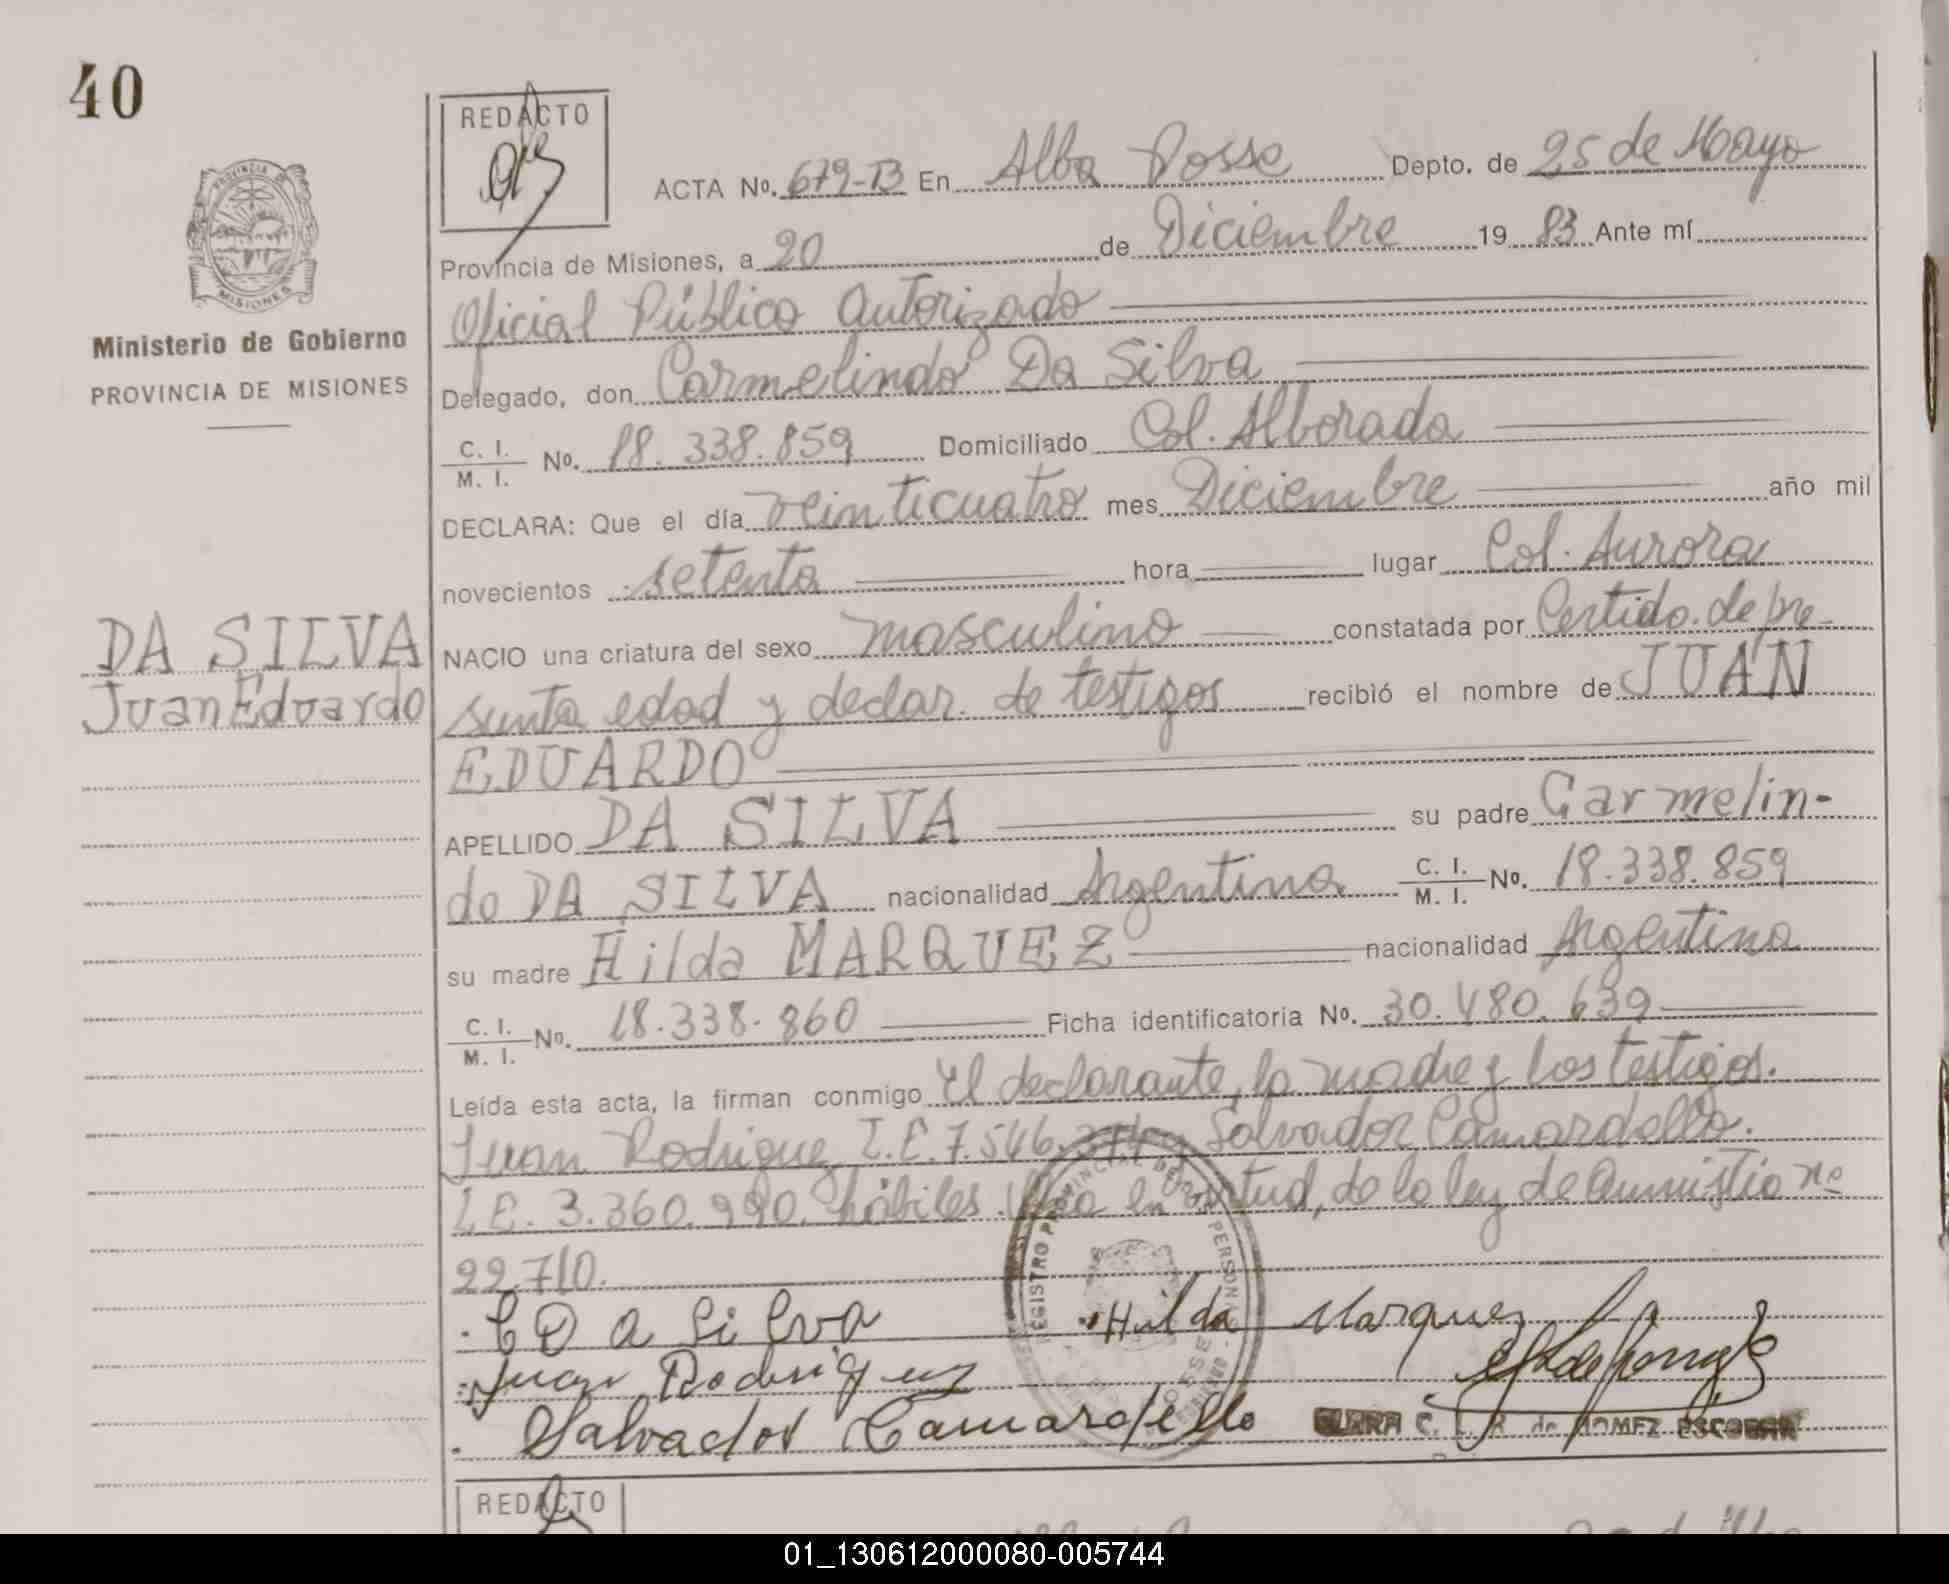 40
REDACTO
ACTA No. 679-B En Alba Posse Depto. de 25 de Mayo
Provincia de Misiones, a 20 de Diciembre 19 83 Ante mí
Oficial Público Autorizado
Ministerio de Gobierno
PROVINCIA DE MISIONES
Delegado, don Carmelindo Da Silva
C. I. M. I. No. 18.338.859 Domiciliado Col. Alborada
DECLARA: Que el día veinticuatro mes Diciembre año mil
novecientos setenta hora lugar Col. Aurora
DA SILVA
Juan Eduardo
NACIO una criatura del sexo masculino constatada por Certido. de pre-
sunta edad y declar. de testigos recibió el nombre de JUAN
EDUARDO
APELLIDO DA SILVA su padre Carmelin-
do DA SILVA nacionalidad Argentina C. I. M. I. No. 18.338.859
su madre Hilda MARQUEZ nacionalidad Argentina
C. I. M. I. No. 18.338.860 Ficha identificatoria No. 30.480.639
Leída esta acta, la firman conmigo El declarante, la madre y los testigos.
Juan Rodriguez L.E. 7.546. Salvador Camardello.
L.E. 3.360.990. hábiles. en virtud, de la ley de Amnistia no
22.710.
C D A Silva Hilda Marquez
Juan Rodriguez
Salvador Camardello CLARA C. L. R. de GOMEZ ESCOBAR
REDACTO
01_130612000080-005744